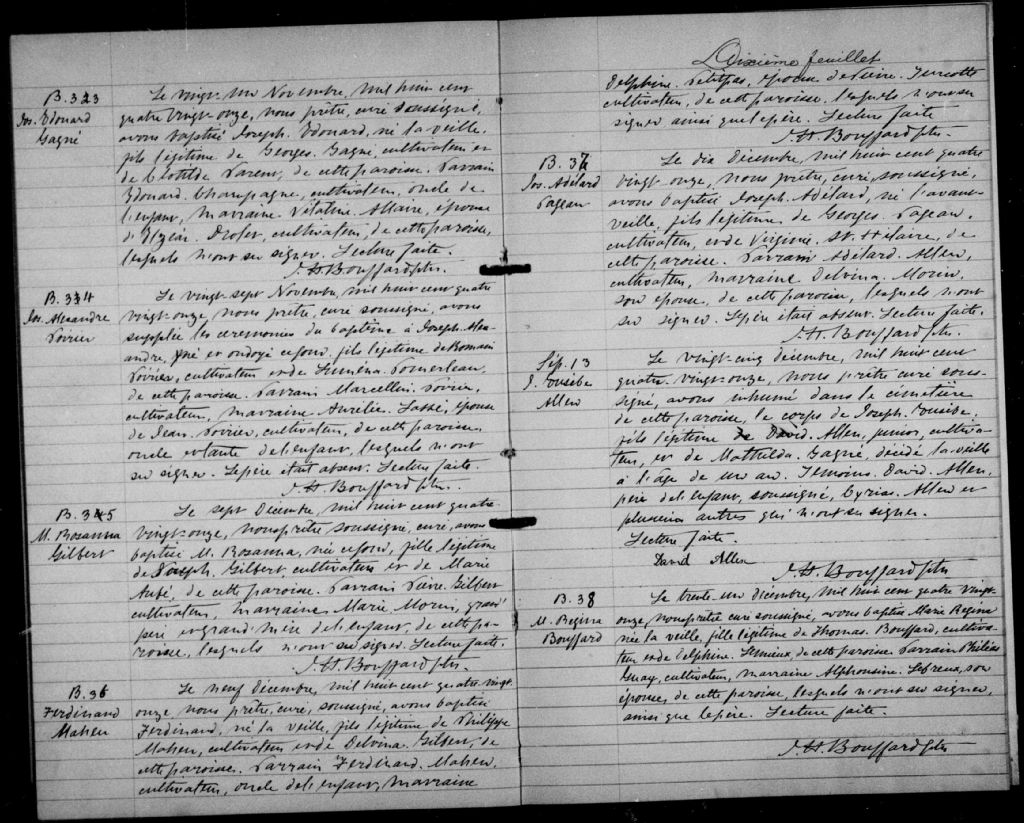 B. 33
Jos. Edouard
Gagné
Le vingt un Novembre, mil huit cent
quatre vingt onze, nous prêtre, curé soussigné,
avons baptisé Joseph. Edouard, né la veille,
fils légitime de Georges. Gagné, cultivateur et
de Clotilde Parent, de cette paroisse. Parrain
Edouard Champagne, cultivateur, oncle de
l'enfant, marraine Vitaline Allaire, épouse
d'Elzéar. cultivateur, de cette paroisse,
lesquels n'ont su signer. Lecture faite.
J. H. Bouffard ptre.
B. 34
Jos. Alexandre
Poirier
Le vingt sept Novembre, mil huit cent quatre
vingt onze, nous prêtre, curé soussigné, avons
supplée les cérémonies du baptême à Joseph. Alex-
andre, né et ondoyé ce jour. fils légitime de Romain
Poirier, cultivateur et de Pomerleau,
de cette paroisse. Parrain Marcellin. Poirier,
cultivateur, marraine Aurélie. épouse
de Jean. Poirier, cultivateur, de cette paroisse,
oncle et tante de l'enfant, lesquels n'ont
su signer. Le père était absent. Lecture faite.
J. H. Bouffard ptre.
B. 35
M. Rosanna
Gilbert
Le sept Décembre, mil huit cent quatre
vingt onze, nous prêtre soussigné, curé, avons
baptisé M. Rozanna, née ce jour, fille légitime
de Joseph. Gilbert, cultivateur et de Marie
Aubé, de cette paroisse. Parrain Pierre. Gilbert
cultivateur, marraine Marie Morin, grand
père et grand'mère de l'enfant de cette pa-
roisse, lesquels n'ont su signer. Lecture faite.
J. H. Bouffard ptre.
B. 36
Ferdinand
Maheu
Le neuf décembre, mil huit cent quatre vingt
onze nous prêtre, curé, soussigné, avons baptisé
Ferdinand, né la veille, fils légitime de Philippe
Maheu, cultivateur et de Delvina. Gilbert, de
cette paroisse. Parrain Ferdinand. Maheu,
cultivateur, oncle de l'enfant, marraine
Dixième feuillet
Delphine. Petitpas, épouse de Pierre. Turcotte
cultivateur, de cette paroisse, lesquels n'ont su
signer ainsi que le père. Lecture faite
J. H. Bouffard ptre.
B. 37
Jos. Adélard
Pageau
Le dix décembre, mil huit cent quatre
vingt onze, nous prêtre, curé, soussigné,
avons baptisé Joseph. Adélard, né l'avant-
veille, fils légitime de Georges. Pageau,
cultivateur, et de Virginie. St. Hilaire, de
cette paroisse. Parrain Adélard. Allen,
cultivateur, marraine Delvina. Morin,
son épouse, de cette paroisse, lesquels n'ont
su signer. Le père était absent. Lecture faite.
J. H. Bouffard ptre.
Sép. 13
J. Eusèbe
Allen
Le vingt cinq décembre, mil huit cent
quatre. vingt onze, nous prêtre curé sous-
signé, avons inhumé dans le cimetière
de cette paroisse, le corps de Joseph. Eusèbe.
fils légitime de David. Allen, junior, cultiva-
teur, et de Mathilda. Gagné, décédé la veille
à l'âge de un an. Témoins David. Allen,
père de l'enfant, soussigné, Cyrias. Allen et
plusieurs autres qui n'ont su signer.
Lecture faite.
David Allen
J. H. Bouffard ptre
B. 38
M. Regina
Bouffard
Le trente un décembre, mil huit cent quatre vingt-
onze, nous prêtre curé soussigné, avons baptisé Marie Regina
née la veille, fille légitime de Thomas. Bouffard, cultiva-
teur et de Delphine. Lemieux, de cette paroisse. Parrain Philéas
Guay, cultivateur, marraine Alphonsine. son
épouse, de cette paroisse, lesquels n'ont su signer,
ainsi que le père. Lecture faite.
J. H. Bouffard ptre